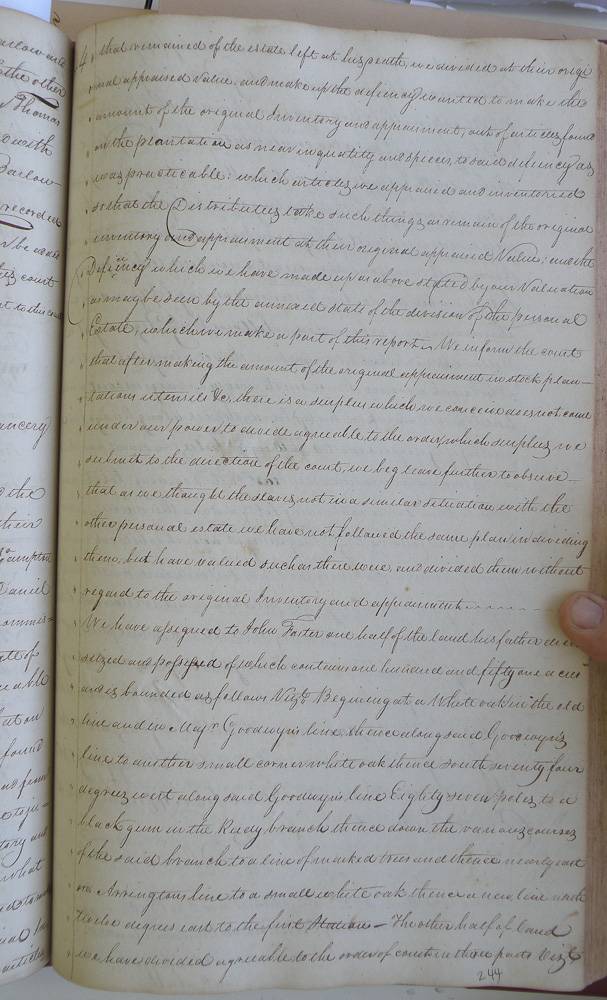 that remained of the estate left at his death, we devided at their origi
nal appraised Value, and make up the defiency wanted to make the
amount of the original Inventory and appraiment, out of articles found
on the plantation as near in quality and species, to said defiency as
was practicable: which articles, we appraised and inventoried
so that the Distributees take such things as remain of the original
inventory and appraiment at their original appraised Value; and the
Defiency which we have made up as above stated by our Valuation
as may be seen by the annexed state of the division of the personal
Estate, which we make a part of this report. We inform the court
that after making the amount of the original appraiment in stock plan-
tation utensils &c, there is a surplus which we conceive does not come
under our power to divide agreeable to the order, which surplus we
submit to the direction of the court, we beg leave further to observe
that as we thought the slaves not in a similar situation with the
other personal estate we have not followed the same plan in dividing
them, but have valued such as there were, and divided them without
regard to the original Inventory and appraiment
We have assigned to John Foster one half of the land his father died
seized and possessed of which contains one hundred and fifty one acres
and is bounded as follows Vizt. Begining at a White oak in the old
line and in Majr. Goodwyn's line thence along said Goodwyn's
line to another small corner white oak thence south seventy four
degrees west along said Goodwyn's line Eighty seven poles, to a
black gum in the Reedy branch thence down the various courses
of the said branch to a line of marked trees and thence nearly east
on Arringtons line to a small white oak thence a new line north
twelve degrees east to the first Station - The other half of land
we have devided agreeable to the order of court in three parts Vizt
244